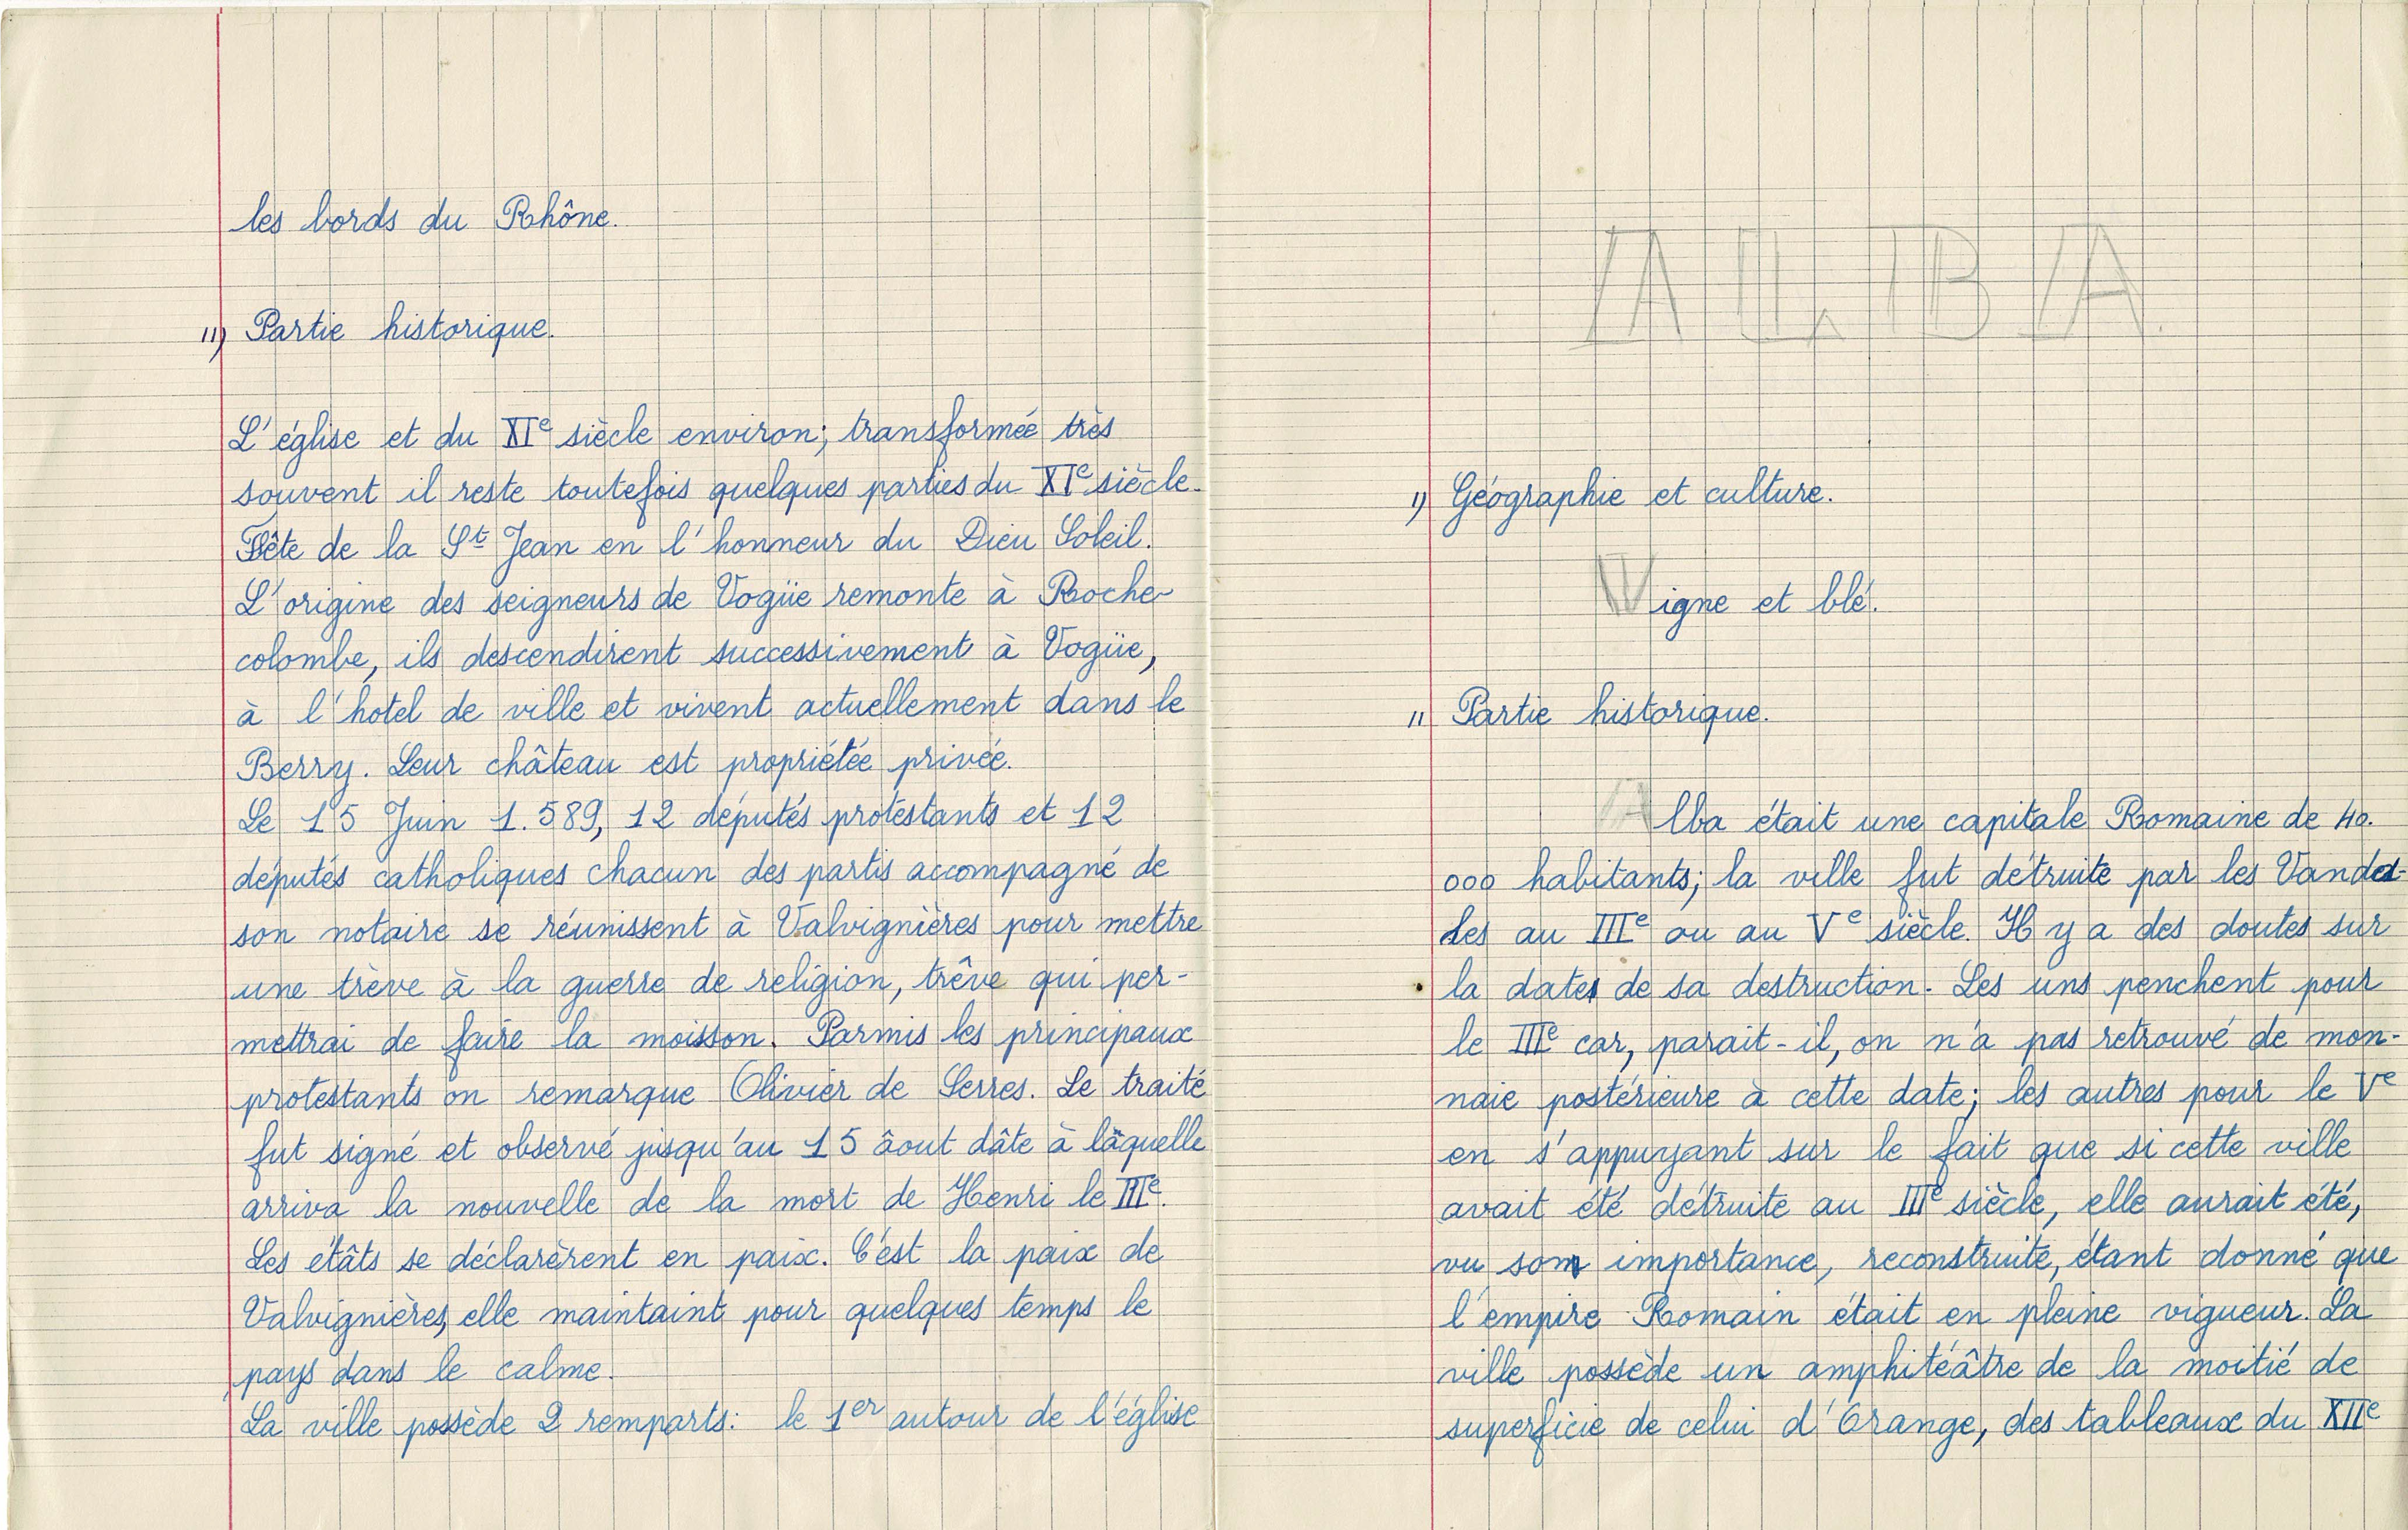 les bords du Rhône.
11) Partie historique.
L'église et du XIe siècle environ; transformée très
souvent il reste toutefois quelques parties du XIe siècle.
Fête de la St Jean en l'honneur du Dieu Soleil.
L'origine des seigneurs de Vogüe remonte à Roche-
colombe, ils descendirent successivement à Vogüe,
à l'hotel de ville et vivent actuellement dans le
Berry. Leur château est propriétée privée.
Le 15 Juin 1.589, 12 députés protestants et 12
députés catholiques chacun des partis accompagné de
son notaire se réunissent à Valvignières pour mettre
une trève à la guerre de religion, trêve qui per-
mettrai de faire la moisson. Parmis les principaux
protestants on remarque Olivier de Serres. Le traité
fut signé et observé jusqu'au 15 âout dâte à lâquelle
arriva la nouvelle de la mort de Henri le IIIe.
Les étâts se déclarèrent en paix. C'est la paix de
Valvignières, elle maintaint pour quelques temps le
pays dans le calme.
La ville possède 2 remparts: le 1er autour de l'église
ALBA.
1) Géographie et culture.
Vigne et blé.
11 Partie historique.
Alba était une capitale Romaine de 40.
000 habitants; la ville fut détruite par les Vanda-
les au IIIe ou au Ve siècle. Il y a des doutes sur
la date de sa destruction. Les uns penchent pour
le IIIe car, parait-il, on n'a pas retrouvé de mon-
naie postérieure à cette date; les autres pour le Ve
en s'appuyant sur le fait que si cette ville
avait été détruite au IIIe siècle, elle aurait été,
vu son importance, reconstruite, étant donné que
l'empire Romain était en pleine vigueur. La
ville possède un amphitéâtre de la moitié de
superficie de celui d'Orange, des tableaux du XIIe